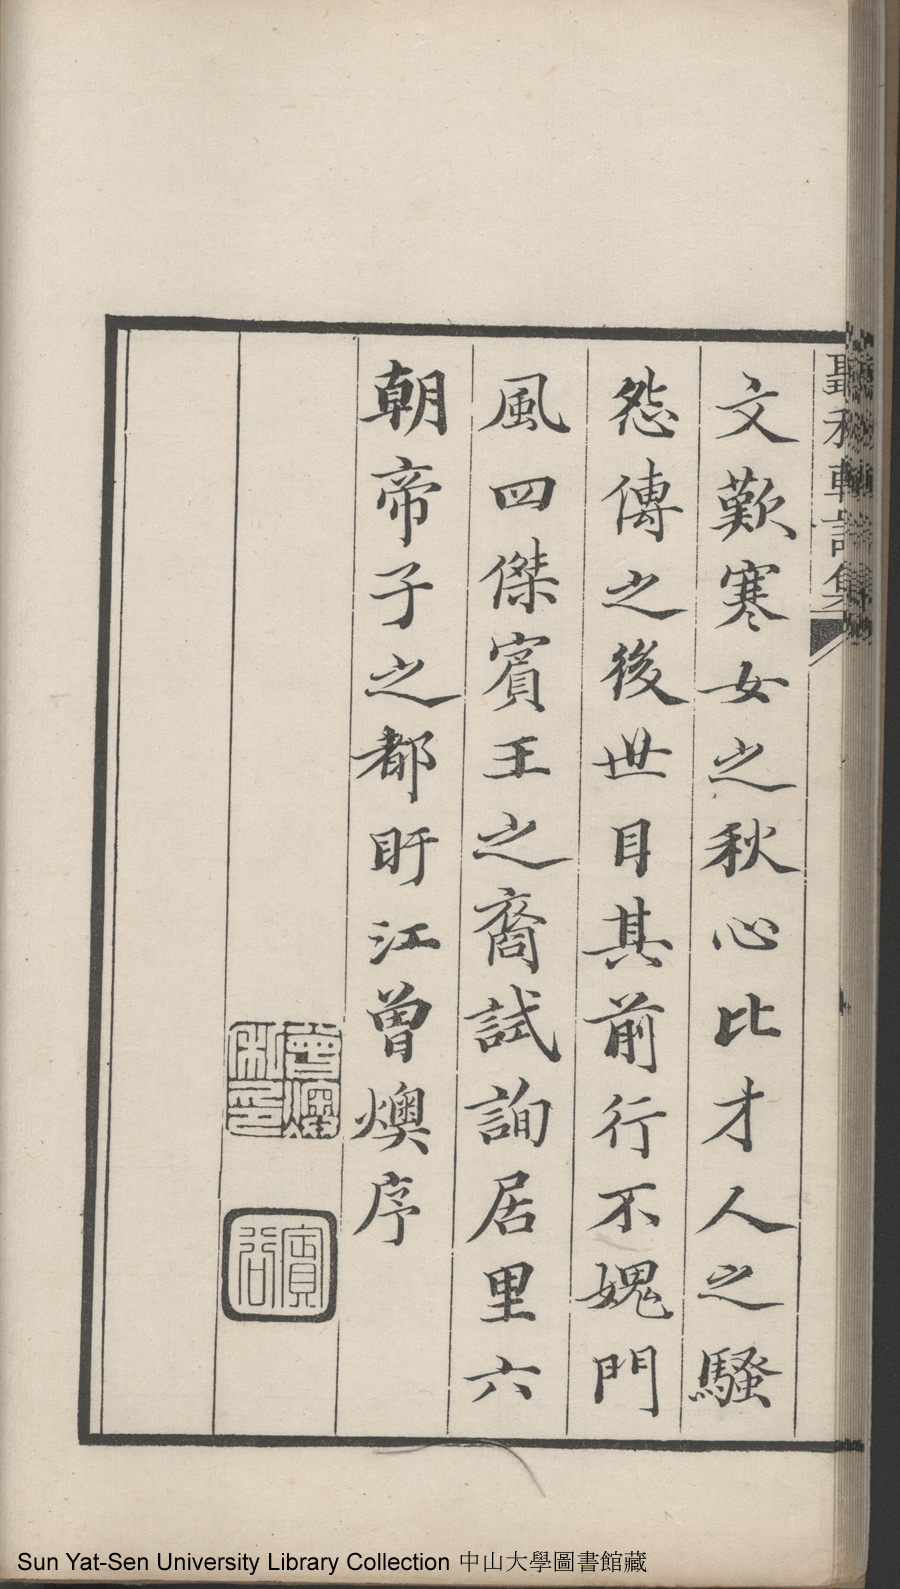 聽秋軒詩集
文歎寒女之秋心比才人之騷
怨傳之後世目其前行不媿門
風四傑賓王之裔試詢居里六
朝帝子之都盱江曾燠序
曾燠私印
賓谷
Sun Yat-Sen University Library Collection 中山大學圖書館藏